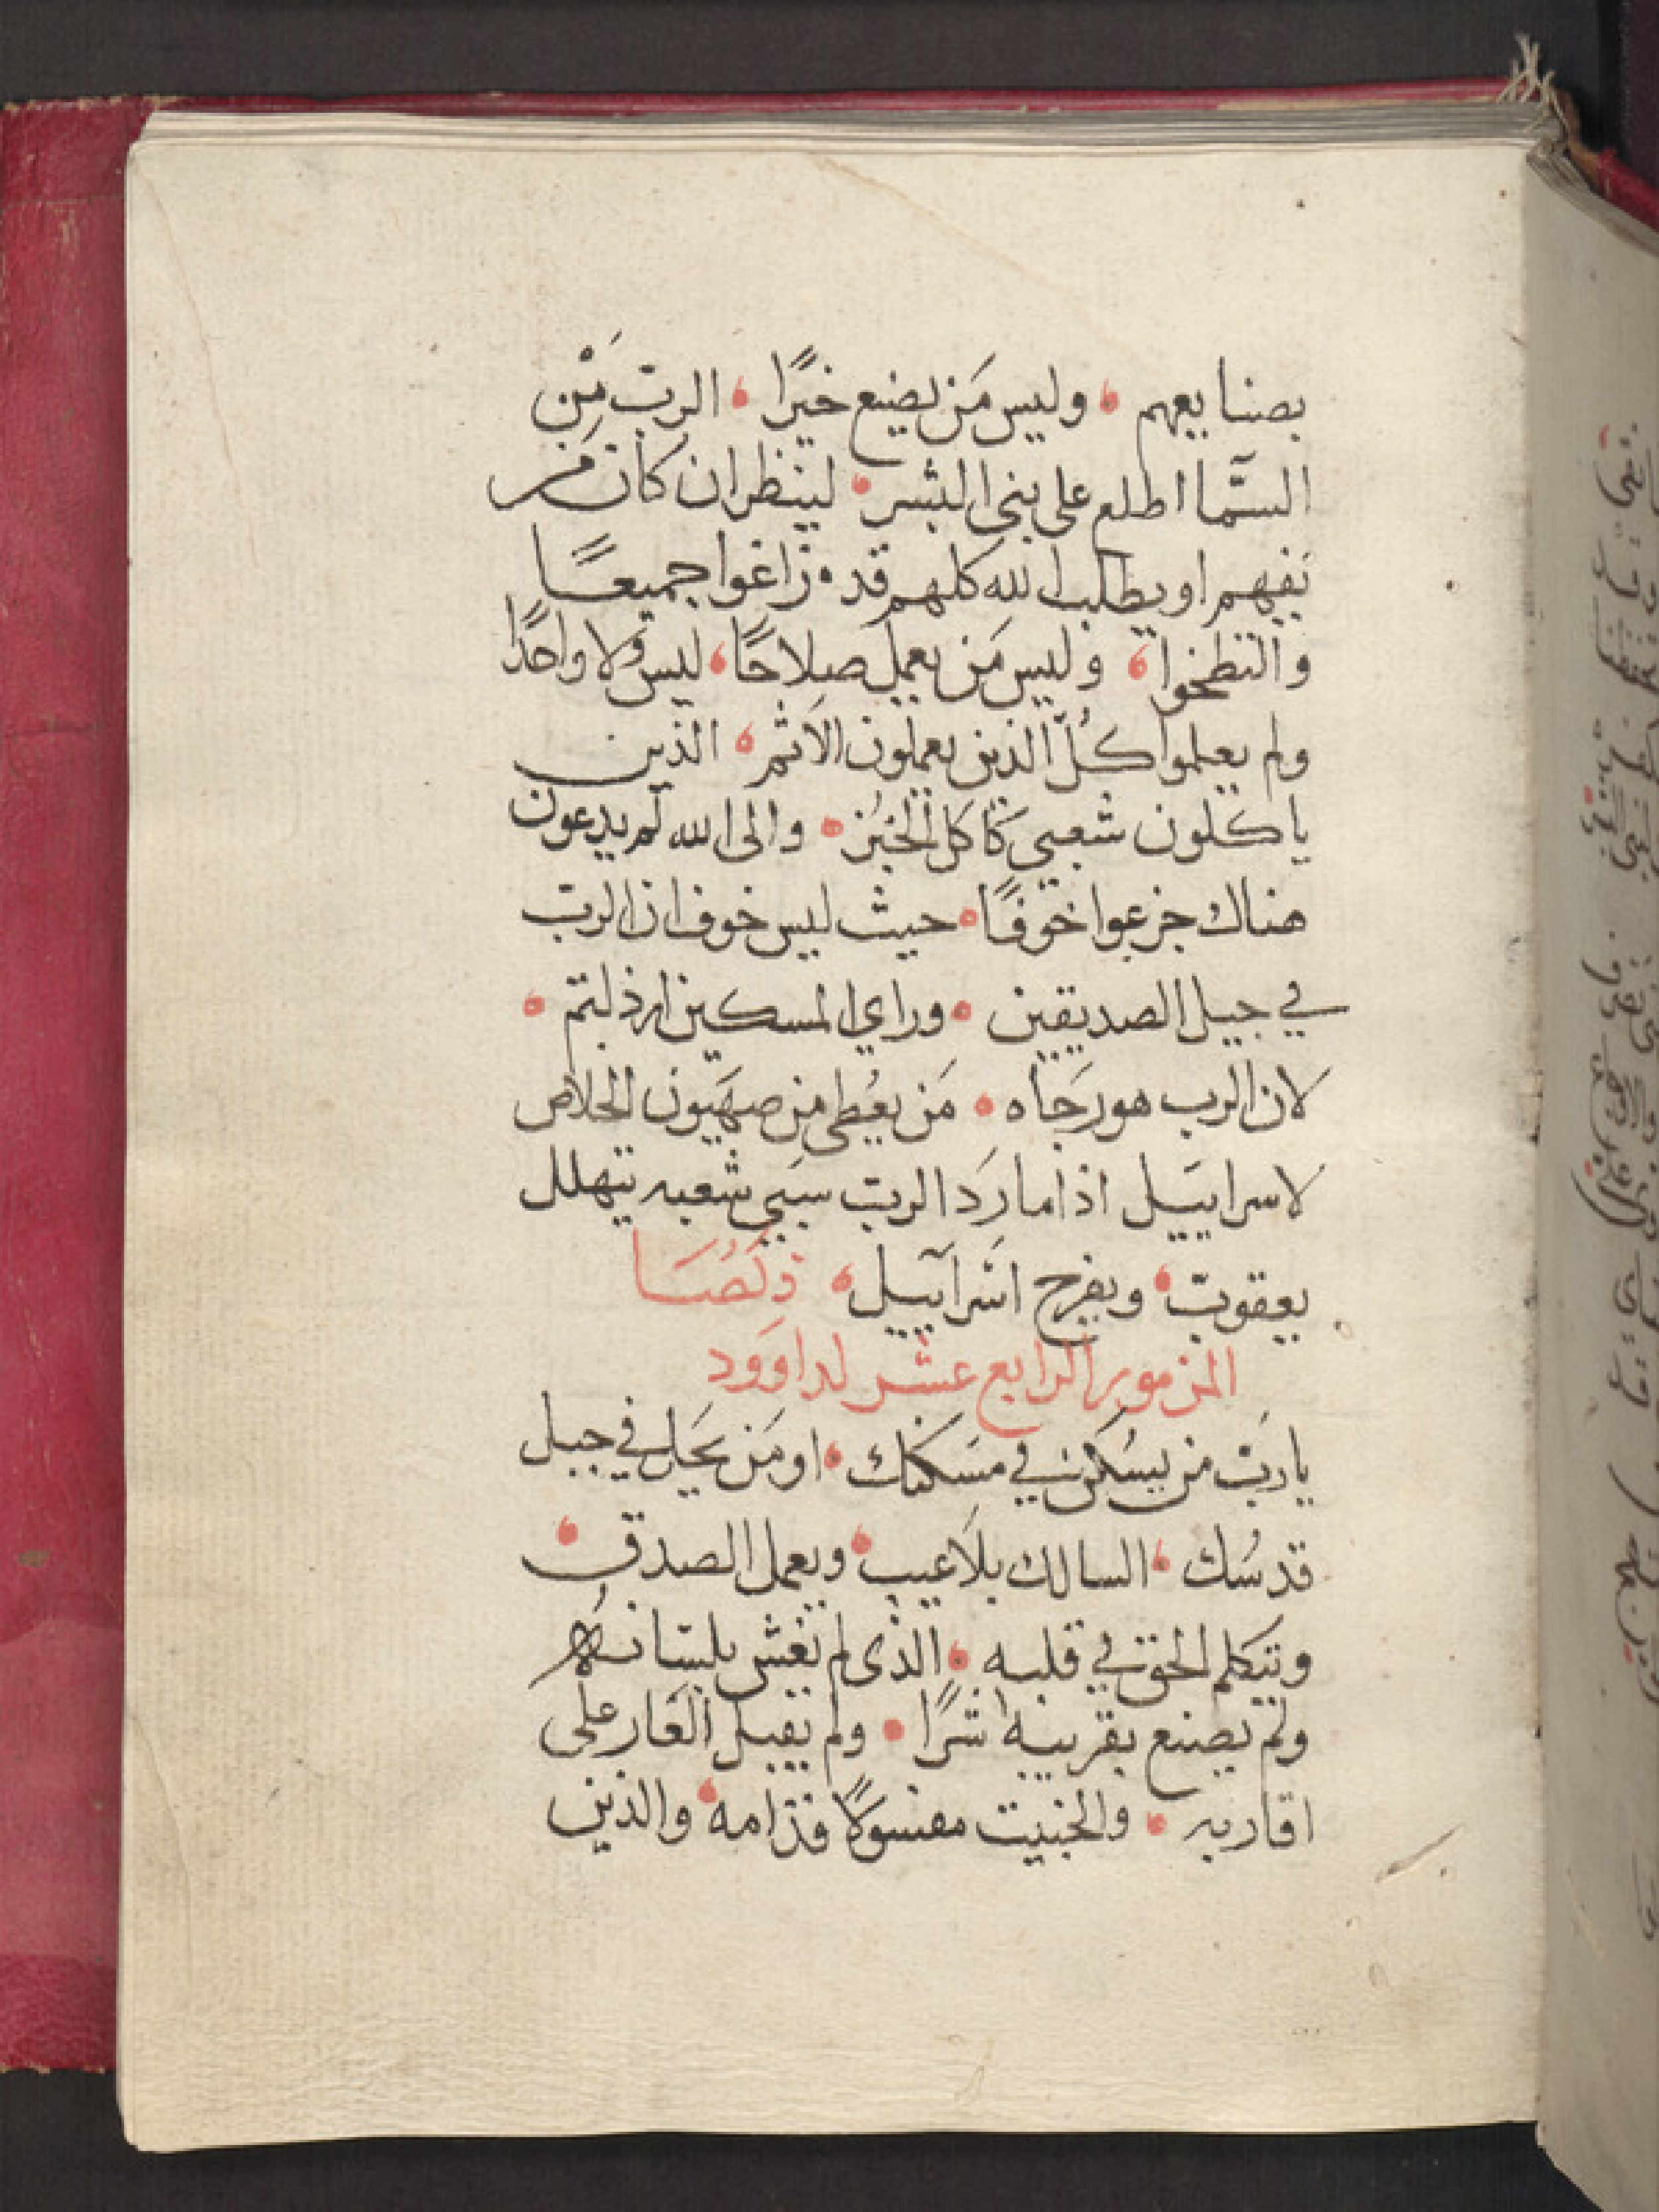 بصنايعهم ، وليس مَن يصنع خيرًا ، الربّ مِنْ
السّما اطلع على بني البشر ، لينظر ان كان مَن
يفهم او يطلب الله كلهم قد زاغوا جميعًا
والتطخوا ، وليس مَن يعمل صلاحًا ، ليس ولا واحدًا
ولم يعلموا كُلّ الذين يعملون الاثم ، الذين
ياكلون شعبي كاكل الخبُز ، والى الله لم يدعون
هناك جزعوا خوفًا ، حيث ليس خوف ان الربّ
في جيل الصديقين ، وراي المسكين ارذلتم ،
لان الرب هو رَجاه ، مَن يعُطى من صهَيون الخلاص
لاسراييَل اذا ما رَدَ الربّ سَبي شعبه يتهلل
يعقوبّ ، ويفرح اسَراييل ، ذكصَا
المزمور الرابع عشر لداوَود
يا ربّ من يسُكن في مسَكنك ، او مَن يَحَل في جبل
قدسُك ، السالك بلاَ عيب ، ويعمل الصدق ،
ويتكلم الحق في قلبه ، الذى لم يغش بلسَانه
ولم يصنع بقريبه شرًا ، ولم يقبل العَار على
اقاربه ، والخبيت مفسودًا قدامه ، والذين